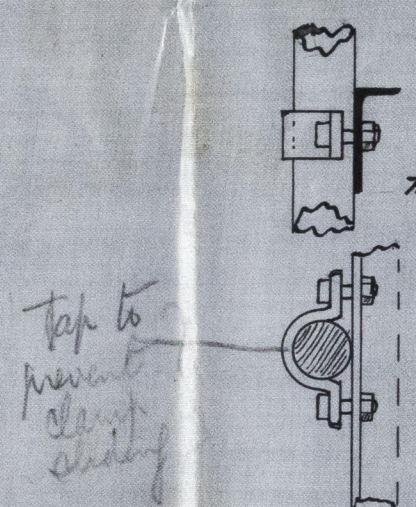 Tap to
prevent
clamp
sliding